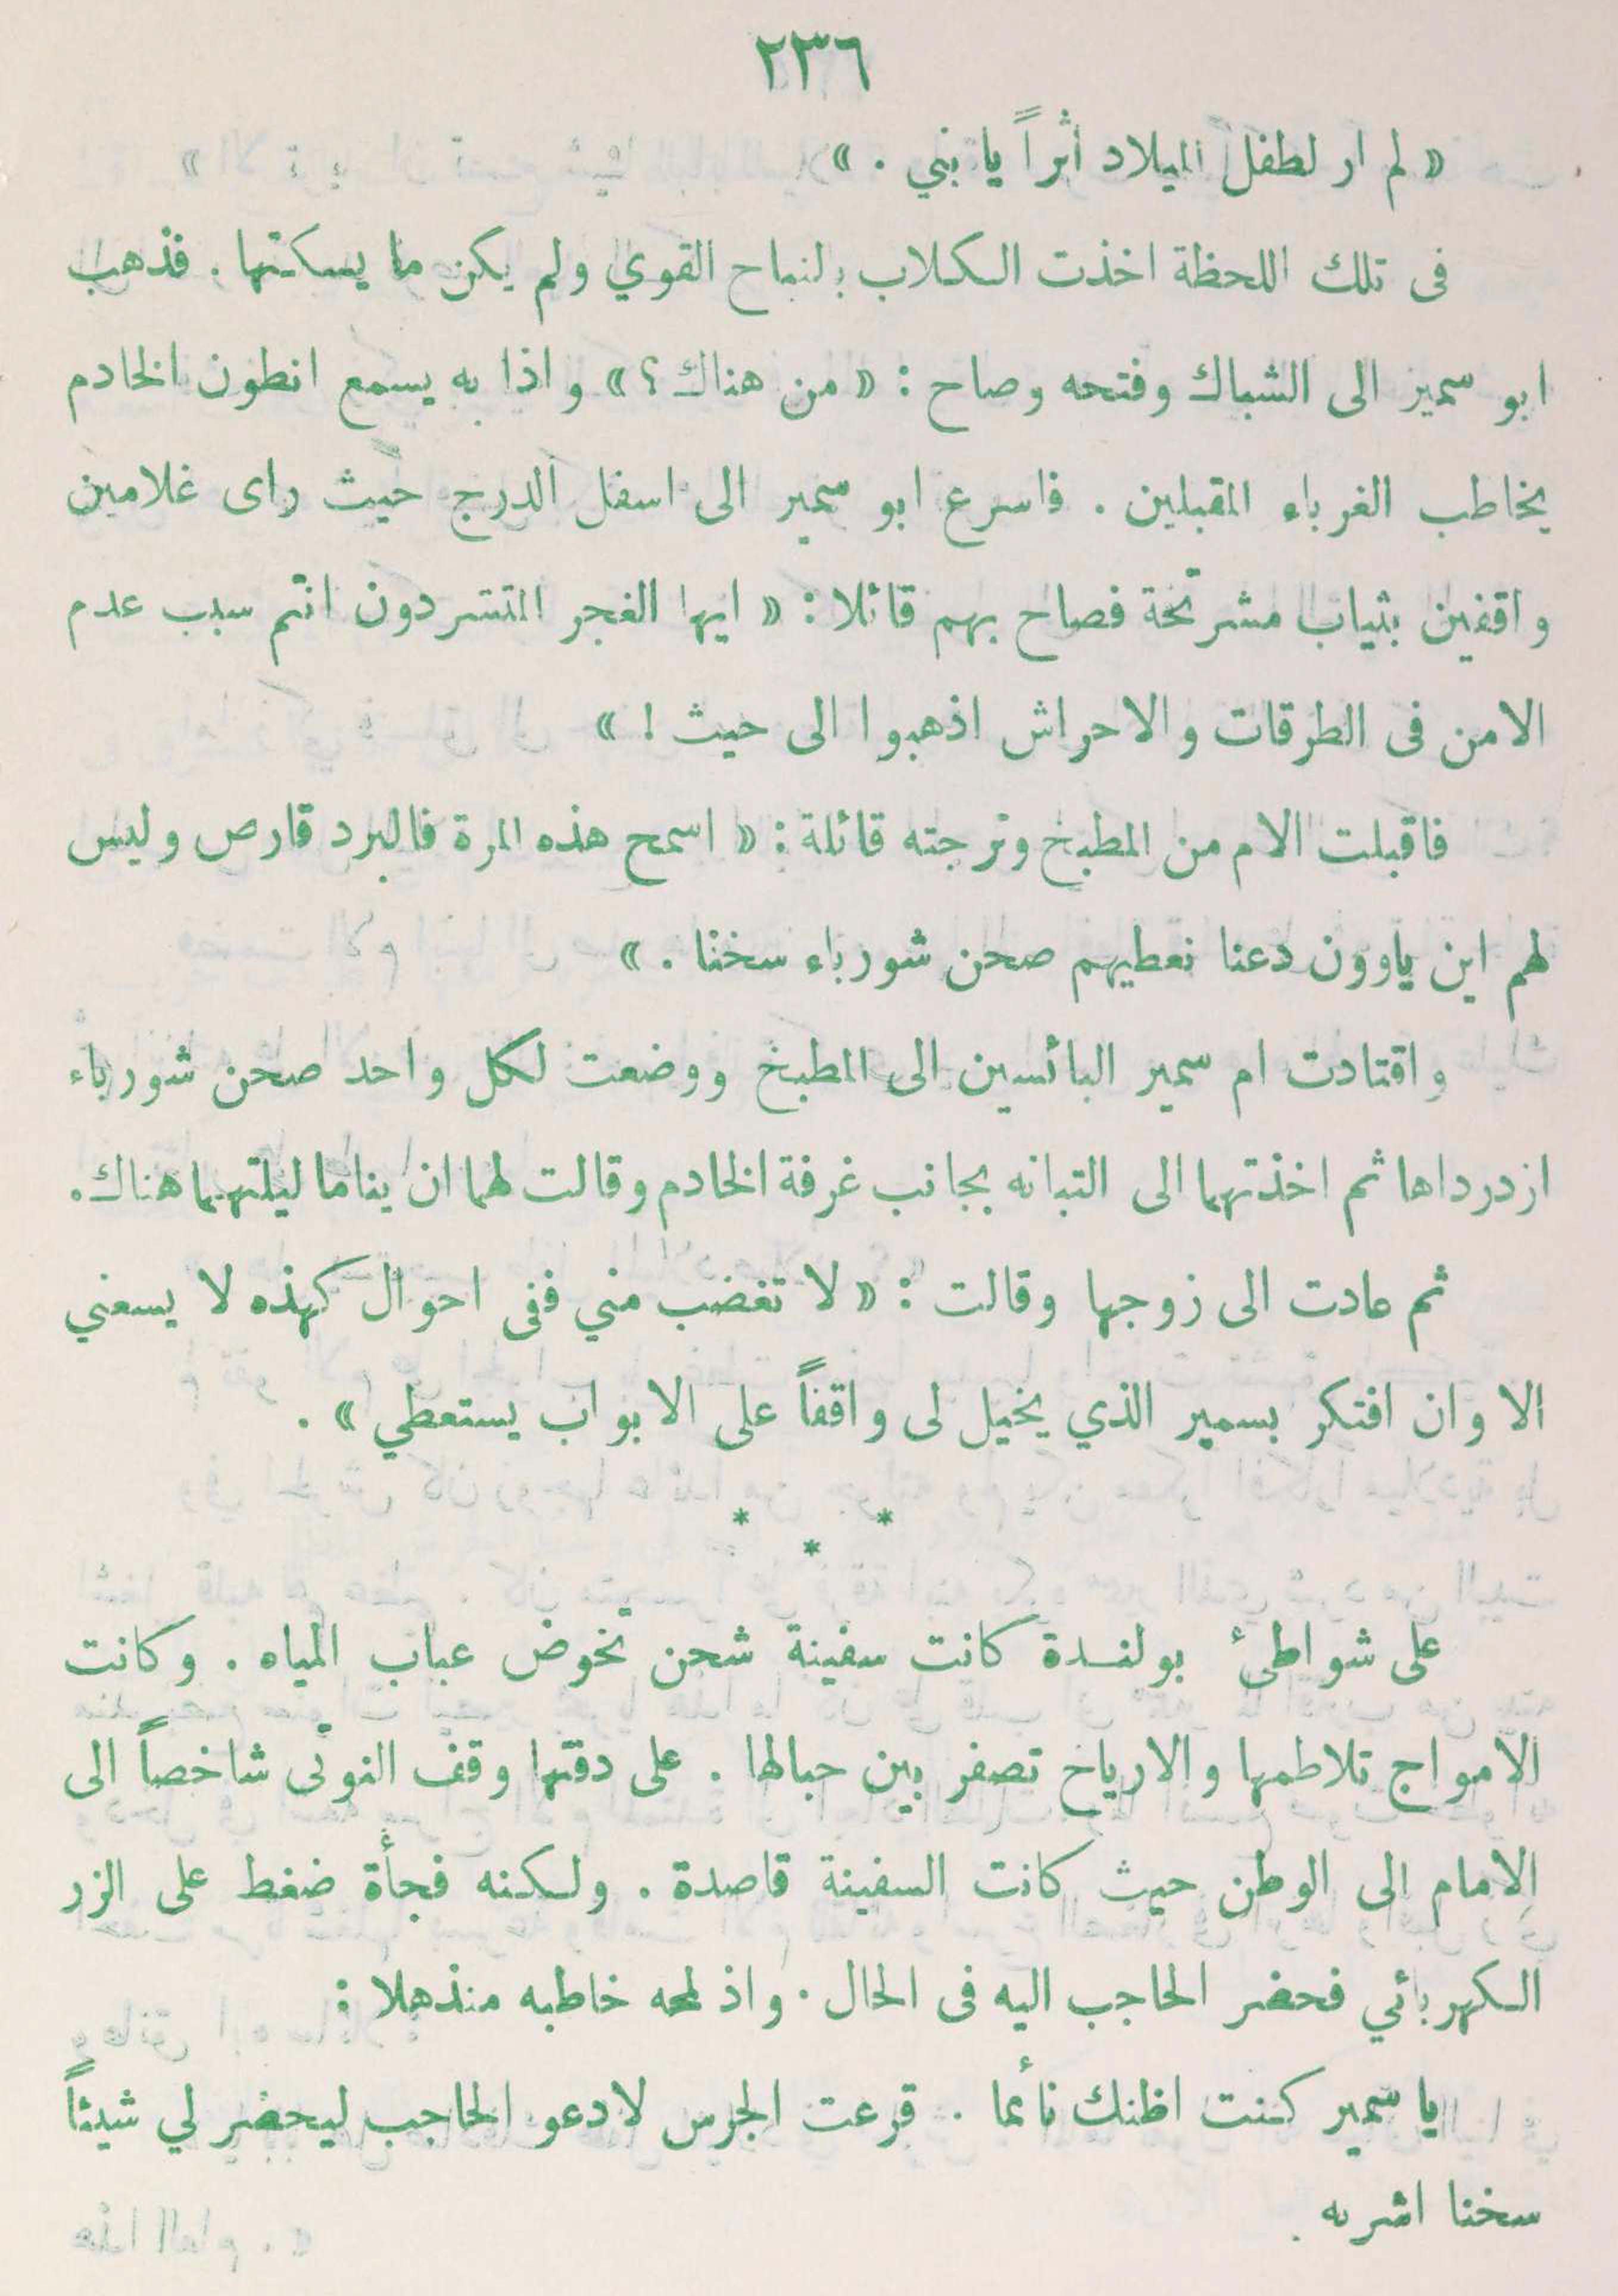 ٢٣٦
« لم ار لطفل الميلاد أثراً يا بني . »
فى تلك اللحظة اخذت الكلاب بالنباح القوي ولم يكن ما يسكتها . فذهب
ابو سمير الى الشباك وفتحه وصاح : « من هناك ؟ » واذا به يسمع انطون الخادم
يخاطب الغرباء المقبلين . فاسرع ابو سمير الى اسفل الدرج حيث راى غلامين
واقفين بثياب مشرتخة فصاح بهم قائلا : « ايها الغجر المتشردون انتم سبب عدم
الامن فى الطرقات والاحراش اذهبوا الى حيث ! »
فاقبلت الام من المطبخ وترجته قائلة : « اسمح هذه المرة فالبرد قارص وليس
لهم اين ياوون دعنا نعطيهم صحن شورباء سخنا . »
واقتادت ام سمير البائسين الى المطبخ ووضعت لكل واحد صحن شورباء
ازدرداها ثم اخذتهما الى التبانه بجانب غرفة الخادم وقالت لهما ان يناما ليلتهما هناك .
ثم عادت الى زوجها وقالت : « لا تغضب مني ففى احوال كهذه لا يسعني
الا وان افتكر بسمير الذي يخيل لى واقفاً على الابواب يستعطي » .
* * *
على شواطئ بولندة كانت سفينة شحن تخوض عباب المياه . وكانت
الامواج تلاطمها والارياح تصفر بين حبالها . على دقتها وقف النوتى شاخصاً الى
الامام الى الوطن حيث كانت السفينة قاصدة . ولكنه فجأة ضغط على الزر
الكهربائي فحضر الحاجب اليه فى الحال . واذ لمحه خاطبه منذهلا :
يا سمير كنت اظنك نأئما . قرعت الجرس لادعو الحاجب ليحضر لي شيئاً
سخنا اشربه .